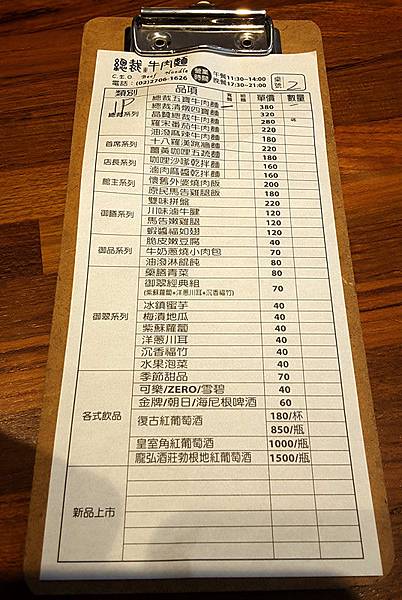 總裁牛肉麵
C.E.O Beef Noodle
電話：(02)2706-1626
營業時間 午餐11:30~14:00
晚餐17:30~21:00
桌號 2
類別 品項 單價 數量
1P
總裁系列
總裁五寶牛肉麵 380
總裁清燉四寶麵 320
晶饌總裁牛肉麵 220
羅宋番茄牛肉麵 280
油潑麻辣牛肉麵 220
首席系列
十八羅漢跳牆麵 220
薑黃咖哩五蔬麵 180
店長系列
咖哩沙嗲乾拌麵 180
滷肉麻醬乾拌麵 160
館主系列
懷舊外婆燒肉飯 200
原民馬告雞腿飯 180
御膳系列
雙味拼盤 220
川味滷牛腱 120
馬告嫩雞腿 120
蝦醬福如翅 120
御品系列
脆皮嫩豆腐 40
牛奶蔥燒小肉包 70
油潑淋餛飩 80
藥膳青菜 80
御翠系列
御翠經典組 70
(紫蘇蘿蔔+洋蔥川耳+沉香福竹)
冰鎮蜜芋 40
梅漬地瓜 40
紫蘇蘿蔔 40
洋蔥川耳 40
沉香福竹 40
水果泡菜 40
各式飲品
季節甜品 70
可樂/ZERO/雪碧 40
金牌/朝日/海尼根啤酒 60
復古紅葡萄酒 180/杯
850/瓶
皇室角紅葡萄酒 1000/瓶
龐弘酒莊勃根地紅葡萄酒 1500/瓶
新品上市